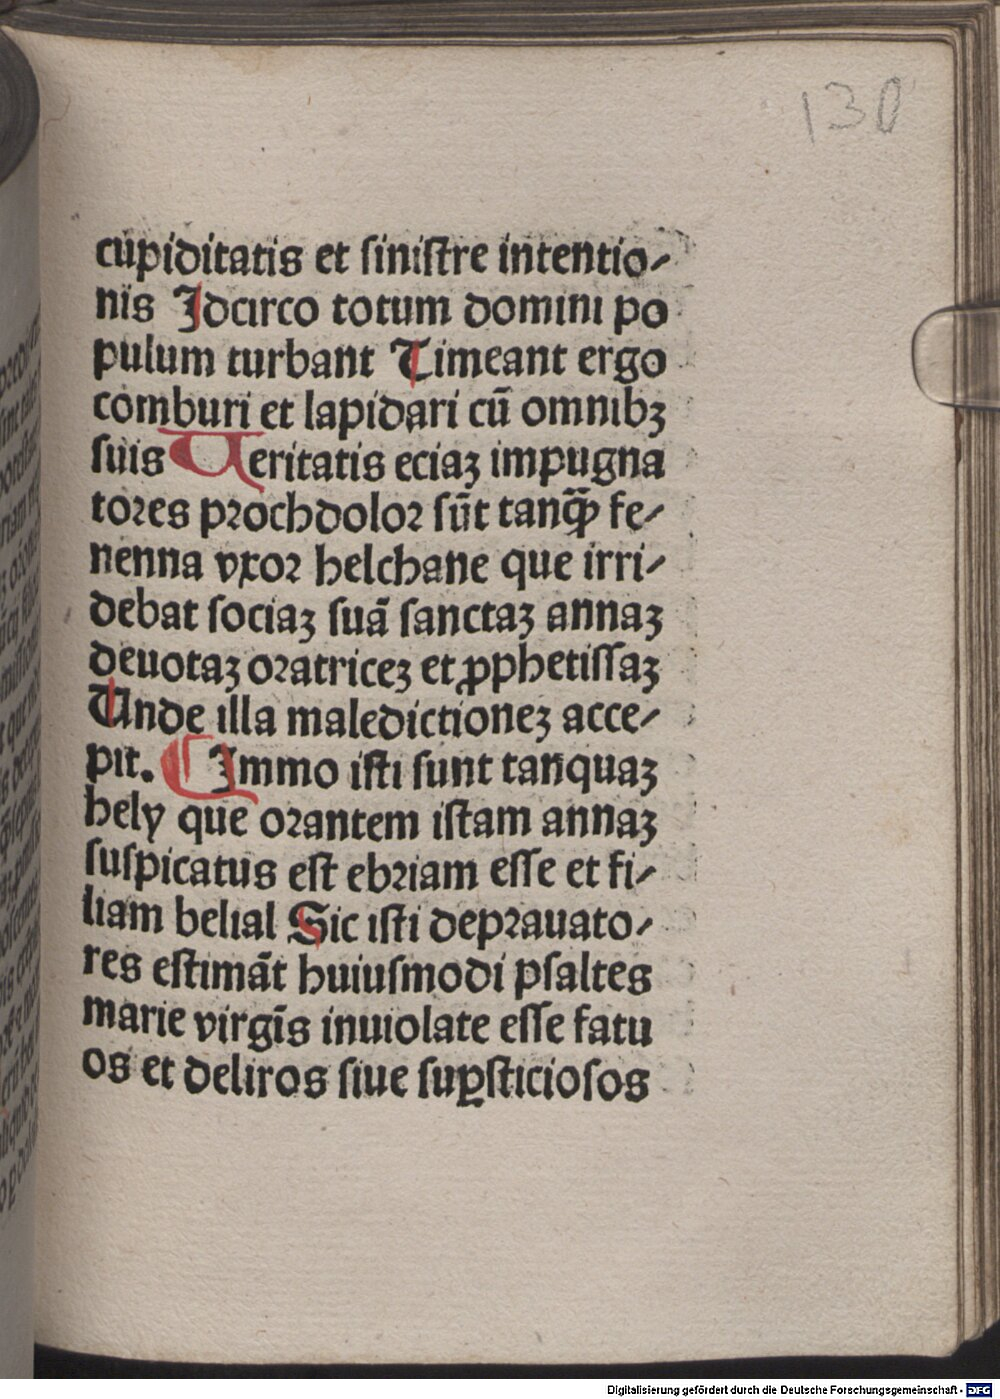 130
cupiditatis et ſiniſtre intentio⸗
nis Idcirco totum domini po
pulum turbant Timeant ergo
comburi et lapidari cū omnibꝫ
ſuis Ueritatis eciaꝫ impugna
toꝛes pꝛochdoloꝛ ſūt tanꝙ̄ fe⸗
nenna vxoꝛ helchane que irri⸗
debat ſociaꝫ ſuā ſanctaꝫ annaꝫ
deuotaꝫ oꝛatriceꝫ et ꝓphetiſſaꝫ
Unde illa maledictioneꝫ acce⸗
pit. Immo iſti ſunt tanquaꝫ
hely que oꝛantem iſtam annaꝫ
ſuſpicatus eſt ebꝛiam eſſe et fi⸗
liam belial Sic iſti depꝛauato⸗
res eſtimāt huiuſmodi pſaltes
marie virgīs inuiolate eſſe fatu
os et deliros ſiue ſuꝑſticioſos
Digitalisierung gefördert durch die Deutsche Forschungsgemeinschaft - DFG